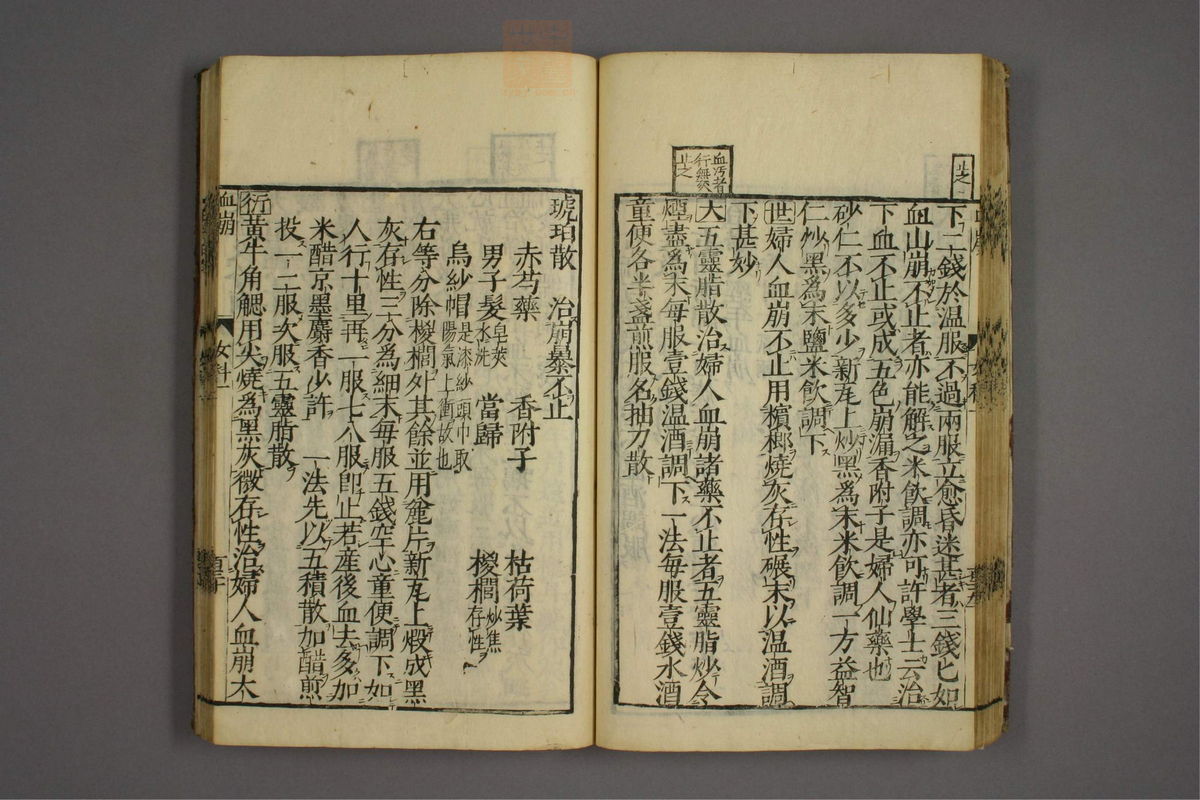 止之
下二錢於温服不過兩服立愈昏迷甚者三錢匕如
血山崩不止者亦能解之米飲調亦可許學士云治
下血不止或成五色崩漏香附子是婦人仙藥也
砂仁不以多少新瓦上炒黑爲末米飲調一方益智
仁炒黑爲末鹽米飲調下
世婦人血崩不止用檳榔燒灰存性碾末以温酒調
下甚妙
血污者
行無災
止之
大五靈脂散治婦人血崩諸藥不止者五靈脂炒令
煙盡爲末每服壹錢温酒調下一法每服壹錢水酒
童便各半盞煎服名抽刀散
琥珀散 治崩暴不止
赤芍藥 香附子 枯荷葉
男子髮皂莢水洗 當歸 椶櫚炒焦存性
烏紗帽是漆紗頭巾取陽氣上衝故也
右等分除椶櫚外其餘並用麄片新瓦上煅成黑
灰存性三分爲細末每服五錢空心童便調下如
人行十里再一服七八服卽止若産後血去多加
米醋京墨麝香少許 一法先以五積散加醋煎
投一二服次服五靈脂散
衍黃牛角䚡用尖燒爲黑灰微存性治婦人血崩太
血崩 女科 百十